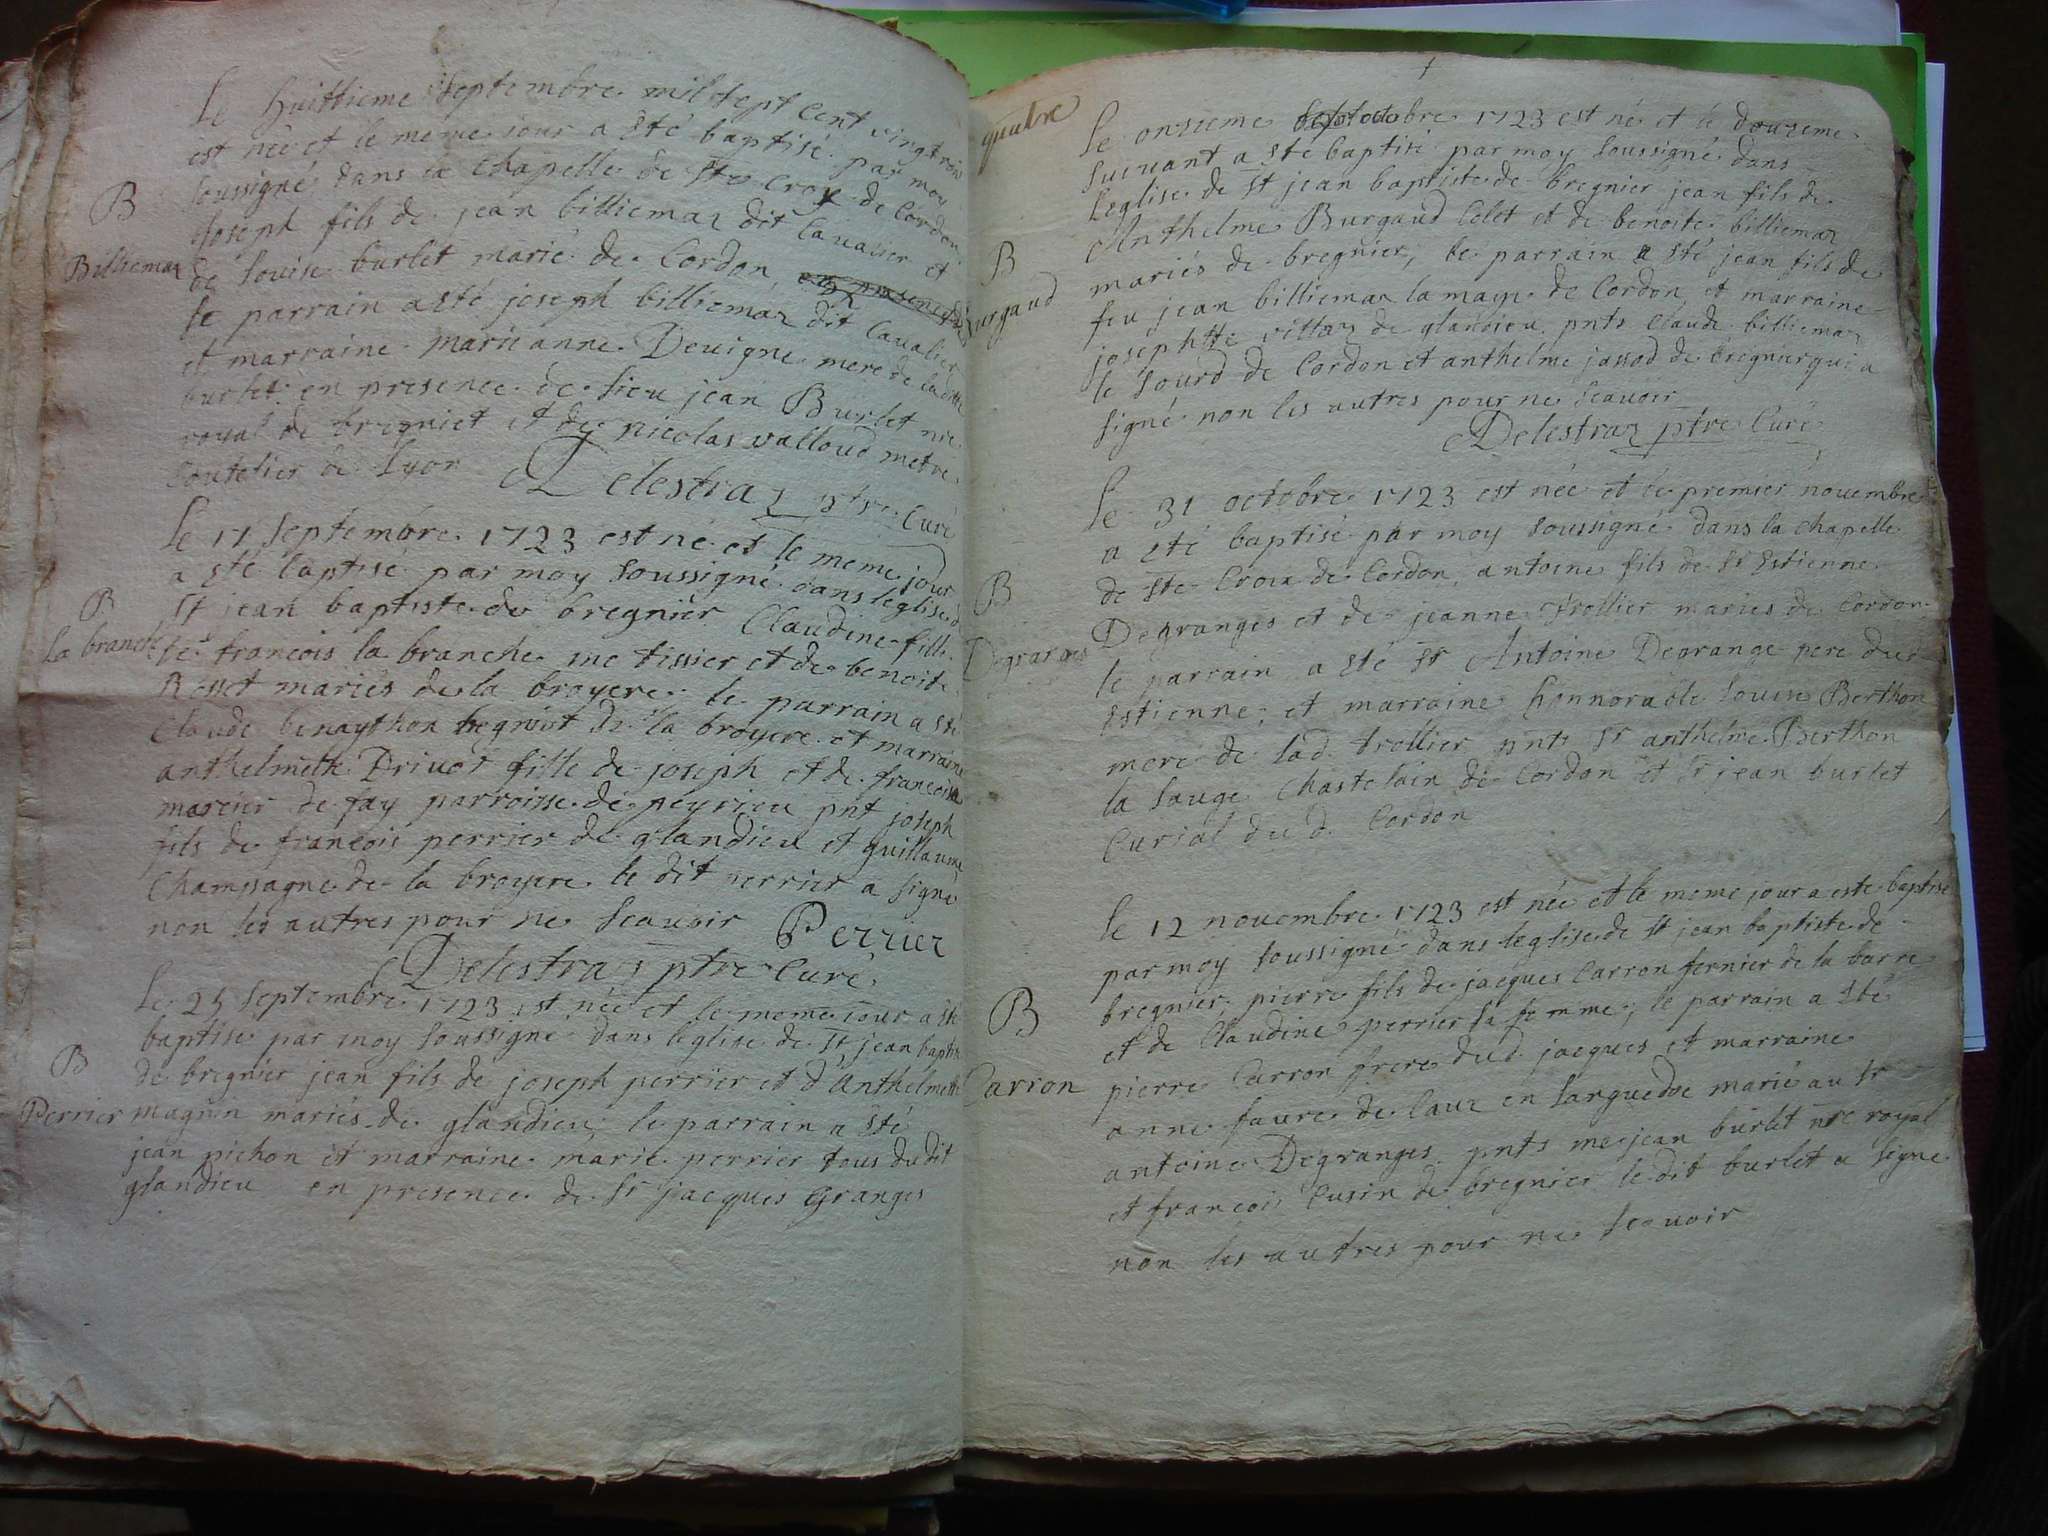 Le huittieme septembre mil sept cent vingt trois
est née et le meme jour a sté baptisé par moy
soussigné dans la chapelle de ste croy de Cordon
B
Joseph fils de jean billiemaz dit Cavalier et
Billiemaz
de louise burlet marié de Cordon
le parrain a sté joseph billiemaz dit Cavalier
et marraine marie anne Devigne mere de la ditte
burlet en presence de sieu jean Burlet nre
royal de bregniet et de nicolas valloud metre
coutelier de Lyon Delestraz ptre Curé
Le 17 septembre 1723 est né et le meme jour
a sté baptisé par moy soussigné dans leglise d
B
St jean baptiste de bregnier Claudine fille
la branche
de francois la branche me tissier et de benoite
Rosset mariés de la broyere le parrain a sté
Claude benaython de la broyere et marraine
anthelmette Drivot fille de joseph et de francoise
marcier de fay parroisse de peyrieu pnt joseph
fils de francois perrier de glandieu et guillaume
Champagne de la broyere le dit perrier a signé
non les autres pour ne scavoir Perrier
Delestraz ptre Curé
Le 25 septembre 1723 est née et le meme jour a sté
baptise par moy soussigne dans leglise de St jean baptis
B
de bregnier jean fils de joseph perrier et d'Anthelmette
Perrier
magnin mariés de glandieu, le parrain a sté
jean pichon et marraine marie perrier tous dudit
glandieu en presence de Sr jacques Granges
quatre
Le onzieme octobre 1723 est né et le douzeme
suivant a sté baptisé par moy soussigné dans
leglise de St jean baptiste de bregnier jean fils de
Anthelme Burgaud Colet et de benoite billiemaz
B
mariés de bregnier, le parrain a sté jean fils de
Burgaud
feu jean billiemaz la maye de Cordon et marraine
josephtte villaz de glandieu pnts Claude billiemaz
le sourd de Cordon et anthelme jassod de bregnier qui a
signé non les autres pour ne scavoir
Delestraz ptre Curé
Le 31 octobre 1723 est née et le premier novembre
a sté baptisé par moy soussigné dans la chapelle
de ste Croix de Cordon, antoine fils de Sr Estienne
B
Degranges et de jeanne trollier mariés de Cordon
Degranges
le parrain a sté Sr Antoine Degrange pere dud
Estienne, et marraine honnorable louise Berthon
mere de lad trollier pnts Sr anthelme Berthon
la sauge Chastelain de Cordon et Sr jean burlet
Curial du d. Cordon
Le 12 novembre 1723 est née et le meme jour a este baptise
par moy soussigné dans leglise de St jean baptiste de
bregnier, pierre fils de jacques Carron fermier de la barre
B
et de Claudine perrier sa femme, le parrain a sté
Carron
pierre Carron frere dud jacques et marraine
anne faure de laur en Languedoc marié au Sr
antoine Degranges pnts me jean burlet nre royal
et francois Cusin de bregnier le dit burlet a signe
non les autres pour ne scavoir